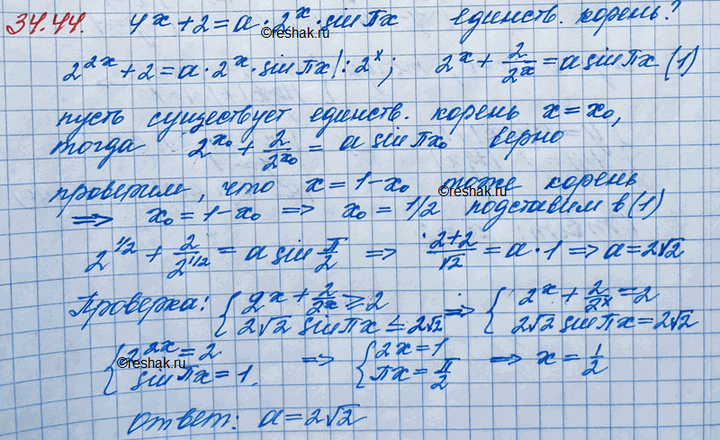 34.44. 4^x + 2 = a · 2^x · sin πx единств. корень?
2^{2x} + 2 = a · 2^x · sin πx | : 2^x; 2^x + 2/2^x = a sin πx (1)
пусть существует единств. корень x = x₀,
тогда 2^{x₀} + 2/2^{x₀} = a sin πx₀ верно
проверим, что x = 1 - x₀ тоже корень
⟹ x₀ = 1 - x₀ ⟹ x₀ = 1/2 подставим в (1)
2^{1/2} + 2/2^{1/2} = a sin π/2 ⟹ (2+2)/√2 = a · 1 ⟹ a = 2√2
Проверка: { 2^x + 2/2^x ≥ 2 ; 2√2 sin πx ≤ 2√2 ⟹ { 2^x + 2/2^x = 2 ; 2√2 sin πx = 2√2
{ 2^{2x} = 2 ; sin πx = 1. ⟹ { 2x = 1 ; πx = π/2 ⟹ x = 1/2
ответ: a = 2√2
©reshak.ru
©reshak.ru
©reshak.ru